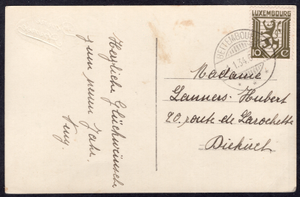 Herzliche Glückwünsche
zum neuen Jahr.
LUXEMBOURG
10 C
LUXEMBOURG
Madame
Lanners-Hubert
20, route de Larochette
Diekirch